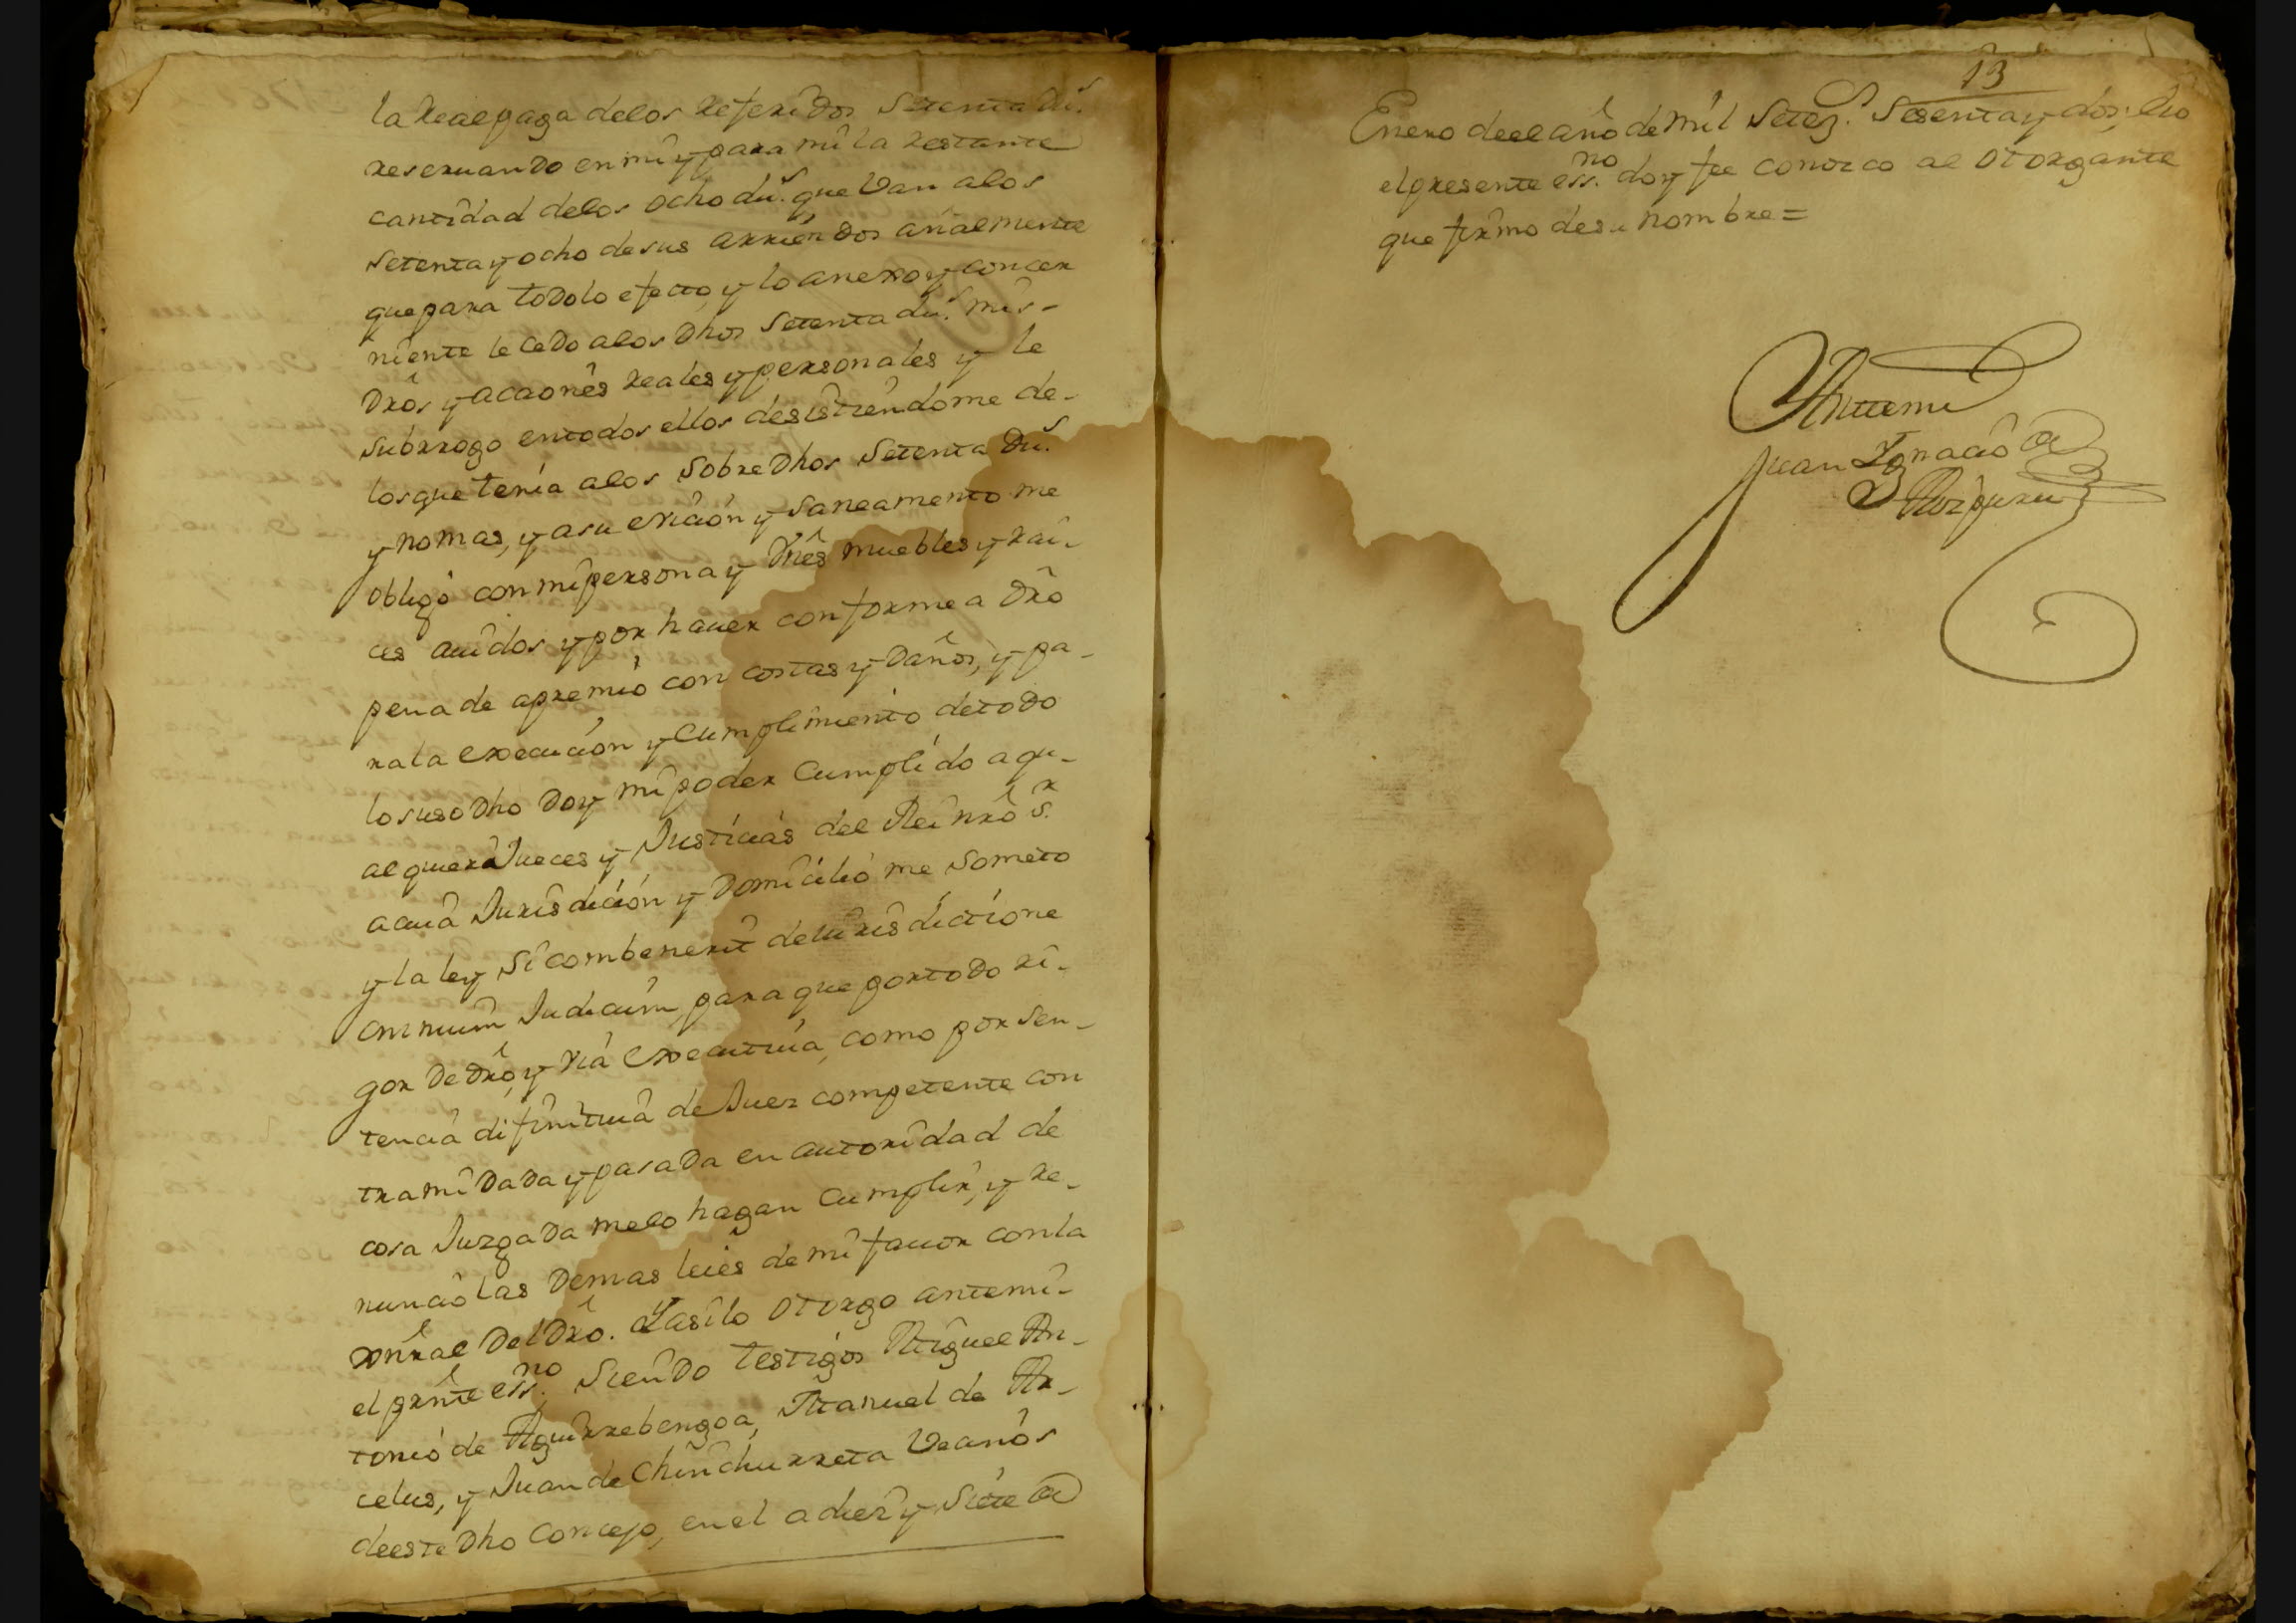 la Real paga delos Referidos Setenta du.s
reseruando en mi y para mi la restante
cantidad delos ocho du.s que Van alos
setenta y ocho de sus arriendos añalmente
que para todo lo efecto, y lo anexo y concer
niente le cedo alos dhos setenta du.s mis-
dros y acciones reales y personales y le
subrrogo en todos ellos desistiendome de-
los que tenia alos sobre dhos setenta du.s
y no mas, y a su evicion y saneamento me
obligo con mi persona y vnes muebles y rai-
ces auidos y por hauer conforme a dro
pena de apremio con costas y daños, y pa-
ra la execucion y cumplimiento de todo
lo suso dho doy mi poder cumplido a qu-
alquiera Jueces y Justicias del Rei nro s.r
a cuia Jurisdicion y domicilio me someto
y la ley si combenerit de iurisdictione
omnium Judicum, para que por todo ri-
gor de dro, y via executiua, como por sen-
tencia difinitiua de Juez competente con
tra mi dada y pasada en autoridad de
cosa Juzgada melo hagan cumplir, y re-
nuncio las demas leies de mi fauor con la
xnral del dro. Y asi lo otorgo antemi-
el prnte ess.no siendo testigos Miguel An-
tonio de Aguirrebengoa, Manuel de Ar-
celus, y Juan de Chinchurreta Vecinos
de este dho Concejo, en el a diez y siete de
13
Enero de el año de mil setez.s sesenta y dos, é io
el presente ess.no doy fee conozco al otorgante
que firmo de su nombre =
Antemi
Juan Ignacio de